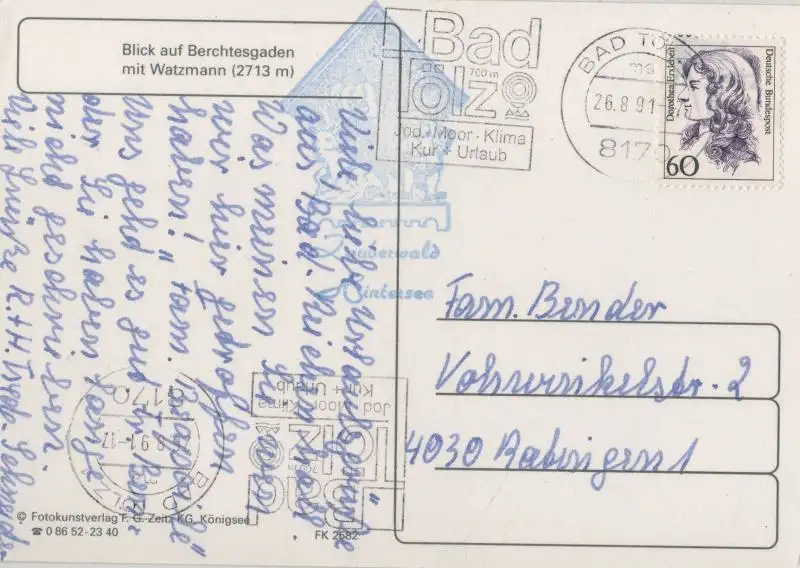 Blick auf Berchtesgaden
mit Watzmann (2713 m)
Bad
Tölz
700 m
Jod · Moor · Klima
Kur + Urlaub
BAD TÖ
26.8.91
8170
Dorothea Erxleben
Deutsche Bundespost
60
Zauberwald
Hintersee
Viele liebe Urlaubsgrüße
aus Bad
Was meinen Sie wen
wir hier getroffen
haben! Fam.
Uns geht es gut
oder Sie haben lange
nicht geschrieben.
Viele Grüße R.+H.
Fam. Bender
Volswinkelstr. 2
4030 Ratingen 1
8170
.8.91-17
BAD TÖLZ
Jod · Moor · Klima
Kur + Urlaub
Bad
Tölz
700 m
© Fotokunstverlag F. G. Zeitz KG, Königsee
☎ 0 86 52-23 40
FK 2582